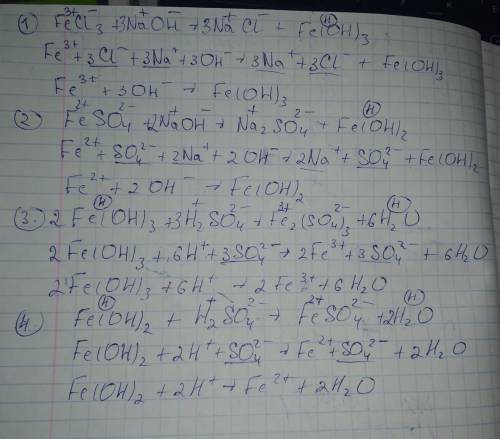 ① Fe³⁺Cl₃⁻ + 3Na⁺OH⁻ → 3Na⁺Cl⁻ + Fe(OH)₃ Ⓗ
Fe³⁺ + 3Cl⁻ + 3Na⁺ + 3OH⁻ → 3Na⁺ + 3Cl⁻ + Fe(OH)₃
Fe³⁺ + 3OH⁻ → Fe(OH)₃
② Fe²⁺SO₄²⁻ + 2Na⁺OH⁻ → Na₂⁺SO₄²⁻ + Fe(OH)₂ Ⓗ
Fe²⁺ + SO₄²⁻ + 2Na⁺ + 2OH⁻ → 2Na⁺ + SO₄²⁻ + Fe(OH)₂
Fe²⁺ + 2OH⁻ → Fe(OH)₂
③. 2Fe(OH)₃ Ⓗ + 3H₂⁺SO₄²⁻ → Fe₂³⁺(SO₄)₃²⁻ + 6H₂O Ⓗ
2Fe(OH)₃ + 6H⁺ + 3SO₄²⁻ → 2Fe³⁺ + 3SO₄²⁻ + 6H₂O
2Fe(OH)₃ + 6H⁺ → 2Fe³⁺ + 6H₂O
④ Fe(OH)₂ Ⓗ + H₂⁺SO₄²⁻ → Fe²⁺SO₄²⁻ + 2H₂O Ⓗ
Fe(OH)₂ + 2H⁺ + SO₄²⁻ → Fe²⁺ + SO₄²⁻ + 2H₂O
Fe(OH)₂ + 2H⁺ → Fe²⁺ + 2H₂O